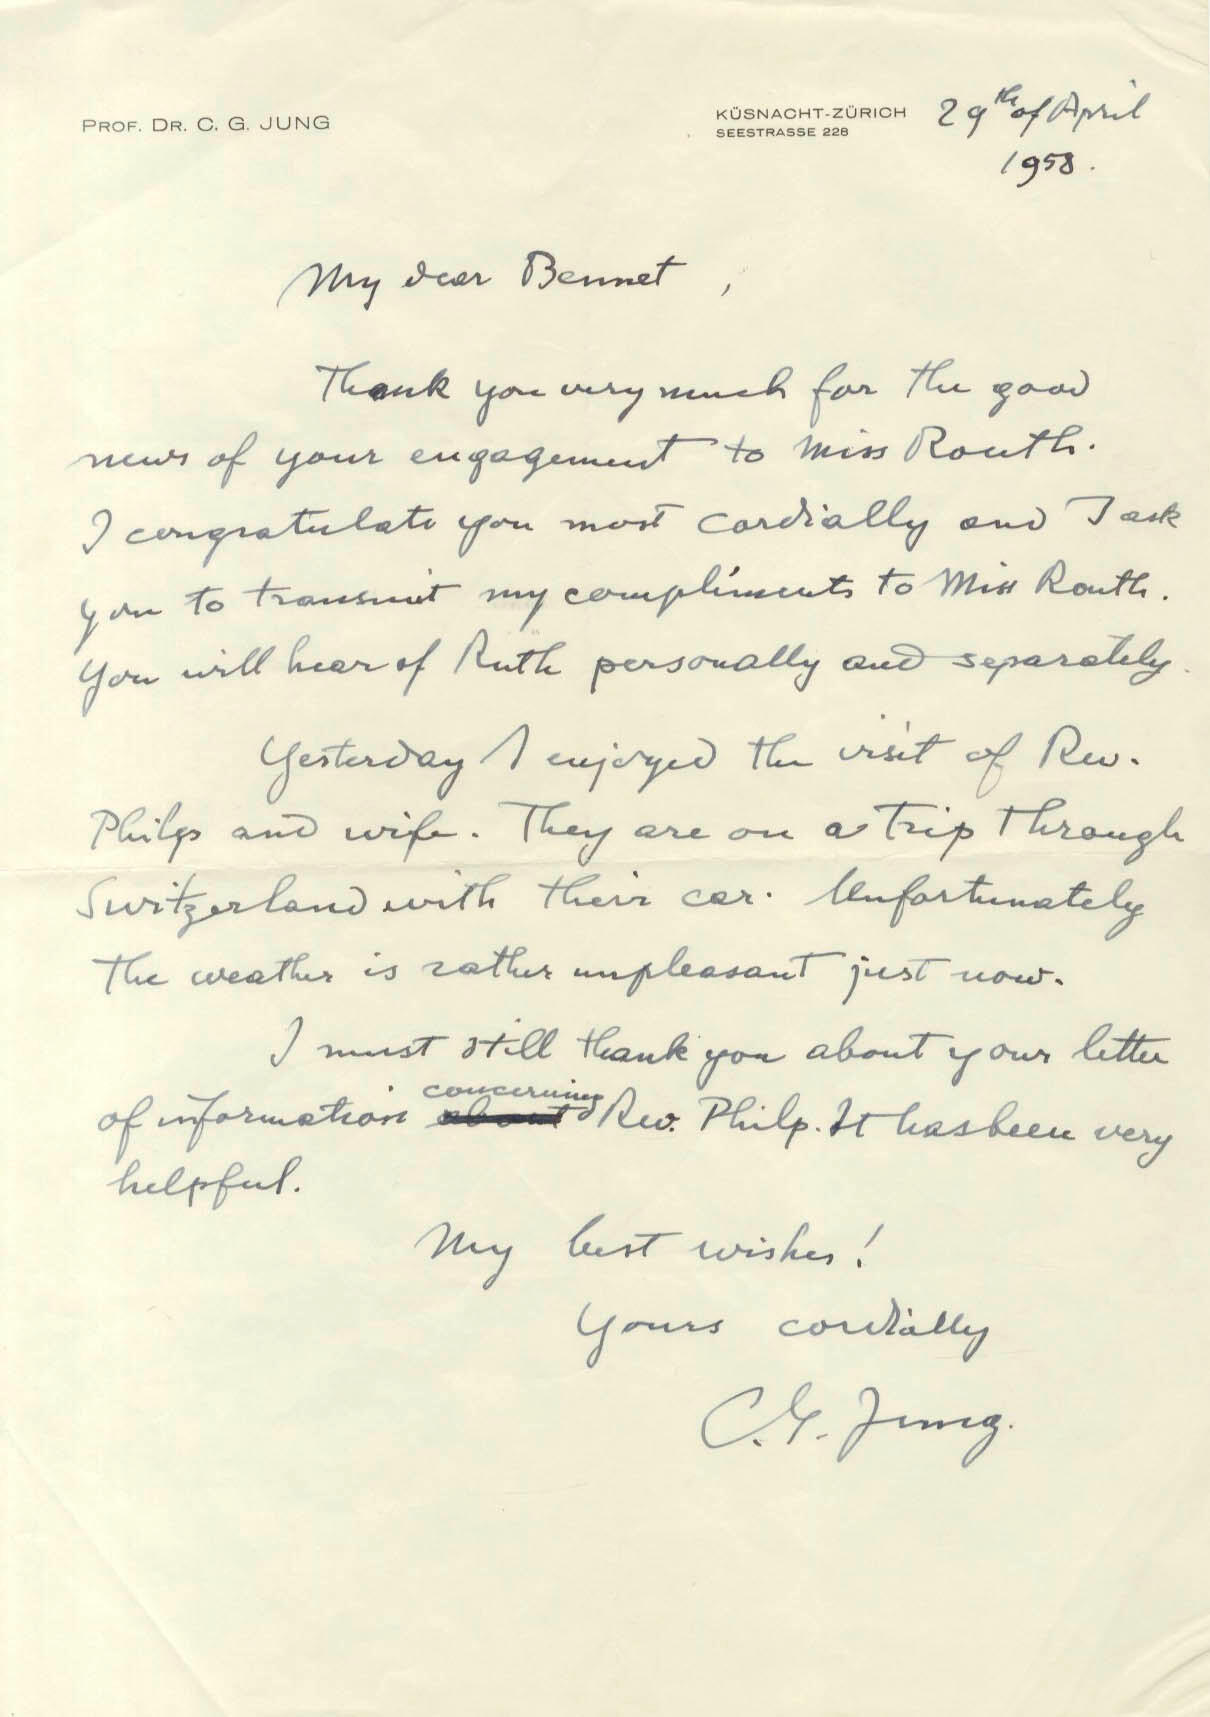 PROF. DR. C. G. JUNG
KÜSNACHT-ZÜRICH 29th of April
SEESTRASSE 228
1958.
My dear Bennet,
Thank you very much for the good
news of your engagement to Miss Routh.
I congratulate you most cordially and I ask
you to transmit my compliments to Miss Routh.
You will hear of Ruth personally and separately.
Yesterday I enjoyed the visit of Rev.
Philps and wife. They are on a trip through
Switzerland with their car. Unfortunately
the weather is rather unpleasant just now.
I must still thank you about your letter
concerning
of information about Rev. Philp. It has been very
helpful.
My best wishes!
Yours cordially
C. G. Jung.